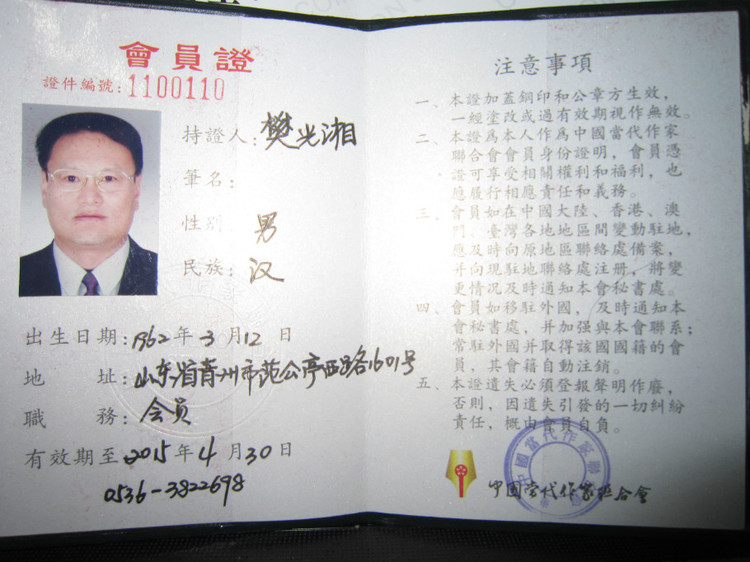 會員證
證件編號：1100110
持證人：樊光湘
筆名：
性别：男
民族：汉
出生日期：1962年3月12日
地址：山东省青州市范公亭西路1601号
職務：会员
有效期至2015年4月30日
0536-3822698
注意事項
一、本證加蓋鋼印和公章方生效，
一經塗改或過有效期視作無效。
二、本證爲本人作爲中國當代作家
聯合會會員身份證明，會員憑
證可享受相關權利和福利，也
應履行相應責任和義務。
三、會員如在中國大陸、香港、澳
門、臺灣各地地區間變動駐地，
應及時向原地區聯絡處備案，
并向現駐地聯絡處注册，將變
更情况及時通知本會秘書處。
四、會員如移駐外國，及時通知本
會秘書處，并加强與本會聯系；
常駐外國并取得該國國籍的會
員，其會籍自動注銷。
五、本證遺失必須登報聲明作廢，
否則，因遺失引發的一切糾紛
責任，概由會員自負。
中國當代作家聯合會
中國當代作家聯